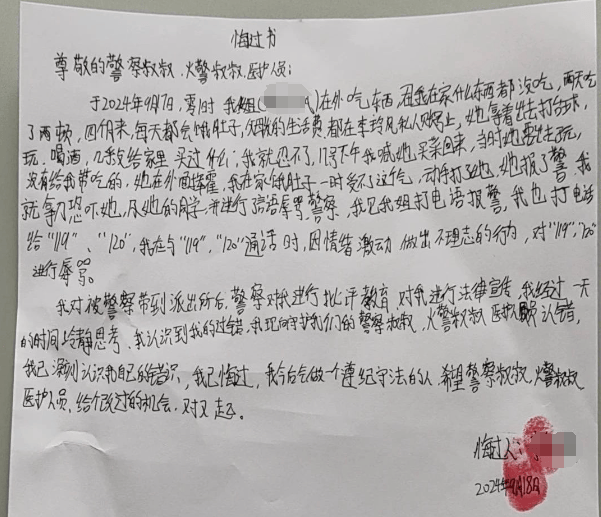 悔过书
尊敬的警察叔叔、火警叔叔、医护人员：
于2024年9月17日,零时 我姐()在外吃东西,但我在家什么东西都没吃,两天吃
了两顿,四个月来,每天都会饿肚子,父亲的生活费都在李玲凤私人账号上,她拿着出去打台球,
玩、喝酒,几乎没给家里买过什么；我就忍不了,17号下午我喊她买菜回来,当时她要出去玩,
没有给我带吃的,她在外面挥霍,我在家饿肚子一时受不了这个气,动手打了她,她报了警,我
就拿刀恐吓她,及她的同学,并进行言语辱骂警察,我见我姐打电话报警,我也打电话
给"119"、"120",我在与"119","120"通话时,因情绪激动 做出不理志的行为,对"119","120"
进行辱骂。
我对被警察带到派出所后,警察对我进行批评教育,对我进行法律宣传,我经过一天
的时间冷静思考、我认识到我的过错,我现向守护我们的警察叔叔,火警叔叔 医护人员认错,
我已深刻认识我自己的错识,我已悔过,我今后会做一个遵纪守法的人,希望警察叔叔,火警叔叔
医护人员,给个改过的机会.对不起。
悔过人：
2024年9月18日